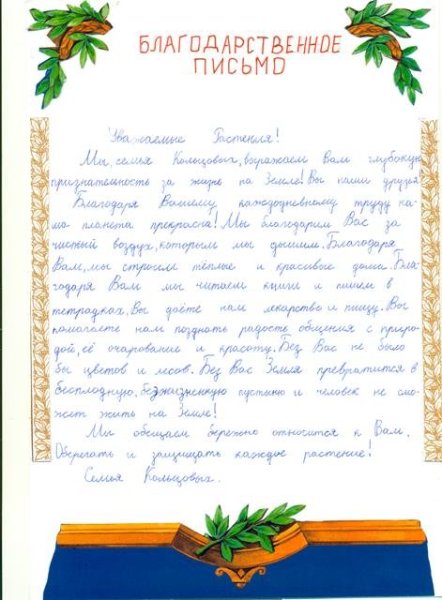 БЛАГОДАРСТВЕННОЕ
ПИСЬМО
Уважаемые Растения!
Мы, семья Кольцовых, выражаем Вам глубокую
признательность за жизнь на Земле! Вы наши друзья
Благодаря Вашему каждодневному труду на-
ша планета прекрасна! Мы благодарим Вас за
чистый воздух, которым мы дышим. Благодаря
Вам, мы строим тёплые и красивые дома. Бла-
годаря Вам мы читаем книги и пишем в
тетрадках. Вы даёте нам лекарства и пищу. Вы
помогаете нам познать радость общения с приро-
дой, её очарование и красоту. Без Вас не было
бы цветов и лесов. Без Вас Земля превратится в
бесплодную, безжизненную пустыню и человек не смо-
жет жить на Земле!
Мы обещаем бережно относится к Вам.
Оберегать и защищать каждое растение!
Семья Кольцовых.